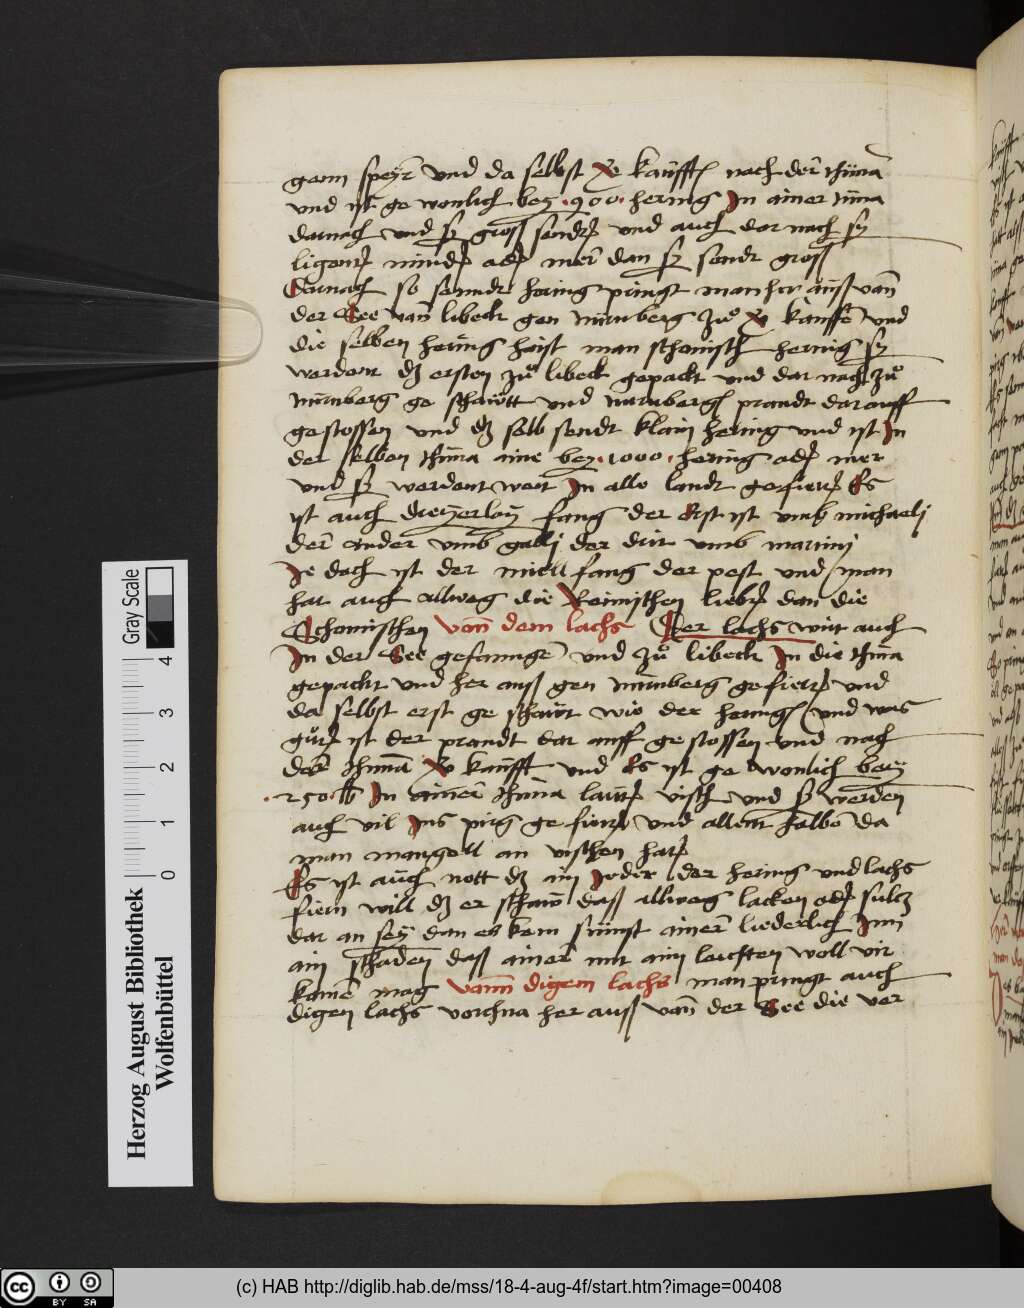 gann speyr und da selbst v kaufft nach der thũna
und ist ge wonlich bey ·900· hering In ainer tũna
darnach und sy gross sendt und auch dar nach sy
ligent minder oder mer dan sy sendt gross
Darnach so senndt hering pringt man her auss vann
der See vann libeck gen nurnberg zu v kauffe und
die selben hering haist man schonisch hering sy
werdent dz ersten zu libeck gepackt und dar nach zu
nurnberg ge schawtt und nurnberger prandt darauff
gestossen und dz selb sendt klain hering und ist In
der selben thũna aine bey ·1000· hering oder mer
und sy werdent weit In alle landt gefiert Es
ist auch dreyerley fang der Erst ist umb michaeli
der ander umb galli der drit umb martini
Je doch ist der mittl fang der pest und man
hat auch allweg die Reinischen lieber dan die
Schonischen vonn dem lachs Der lachs wirt auch
In der See gefannge und zu libeck In die thũna
gepackt und her auss gen nurnberg gefiert und
da selbst erst ge schawt wie der hering und was
gut ist der prandt dar auff ge stossen und nach
der thũna v kaufft und Es ist ge wonlich bey
·250· lb In ainer thũna lautter visch und sy werden
auch vil Ins pirg ge fiert und allent halbe da
man mangell an vischen hat
Es ist auch nott dz ain Jeder der hering und lachs
fiern will dz er schaw dass allweg lacken oder sultz
dar an sey dan es kem sunst ainer liederlich Inn
ain schaden dass ainer mit ain leichten woll vir
kome mag vonn digem lachs man pringt auch
digen lachs vorchna her auss vann der See die ver
Herzog August Bibliothek
Wolfenbüttel
Gray Scale
0 1 2 3 4
cc BY SA
(c) HAB http://diglib.hab.de/mss/18-4-aug-4f/start.htm?image=00408